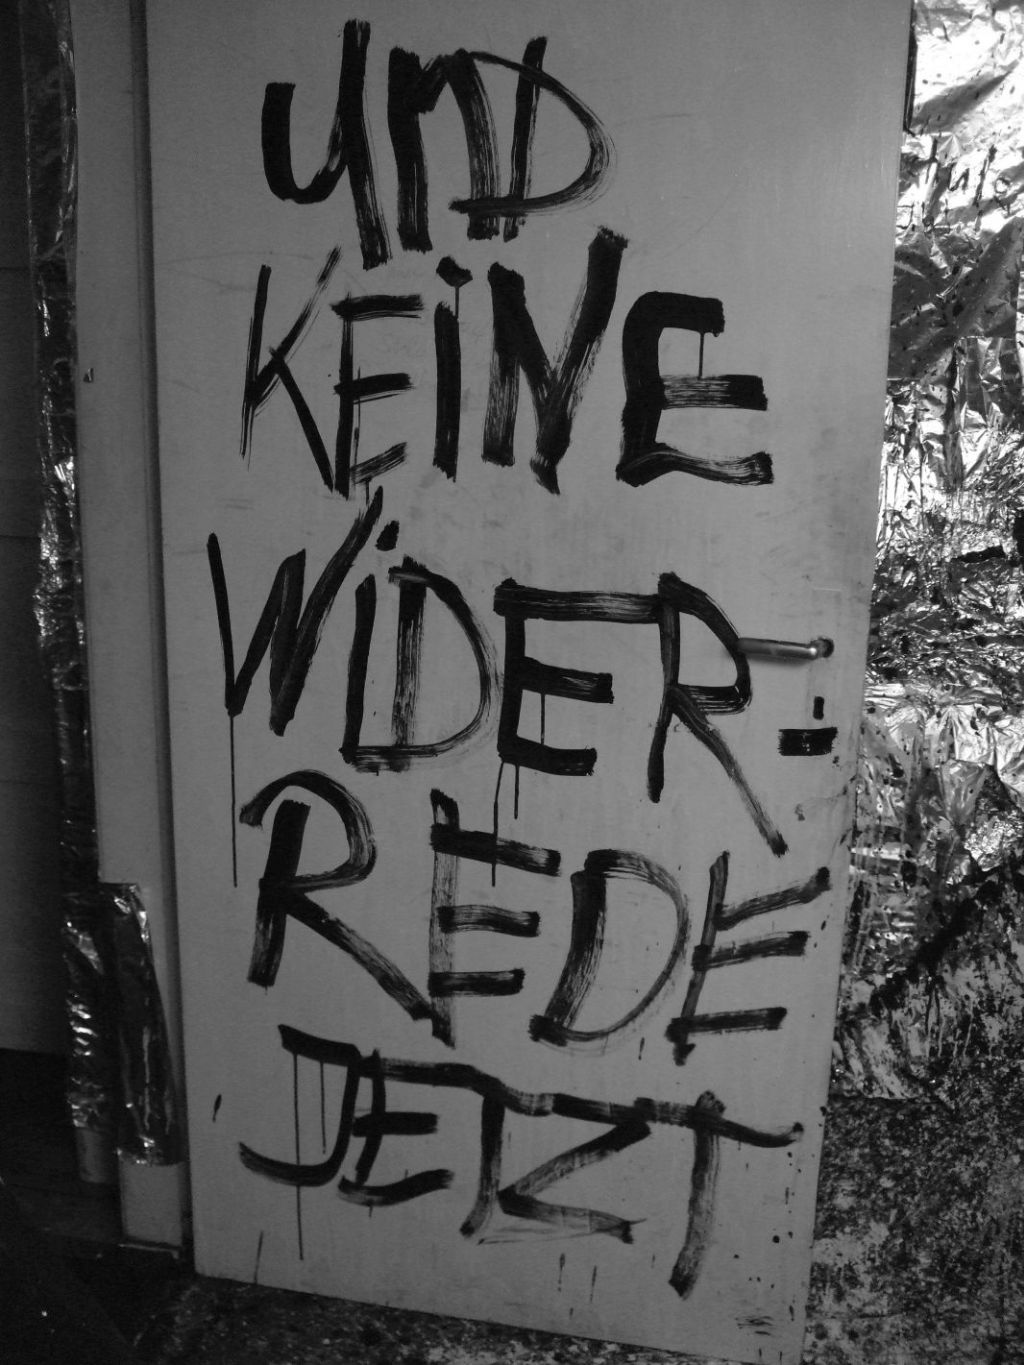 UND
KEiNE
WiDER-
REDE
JETZT